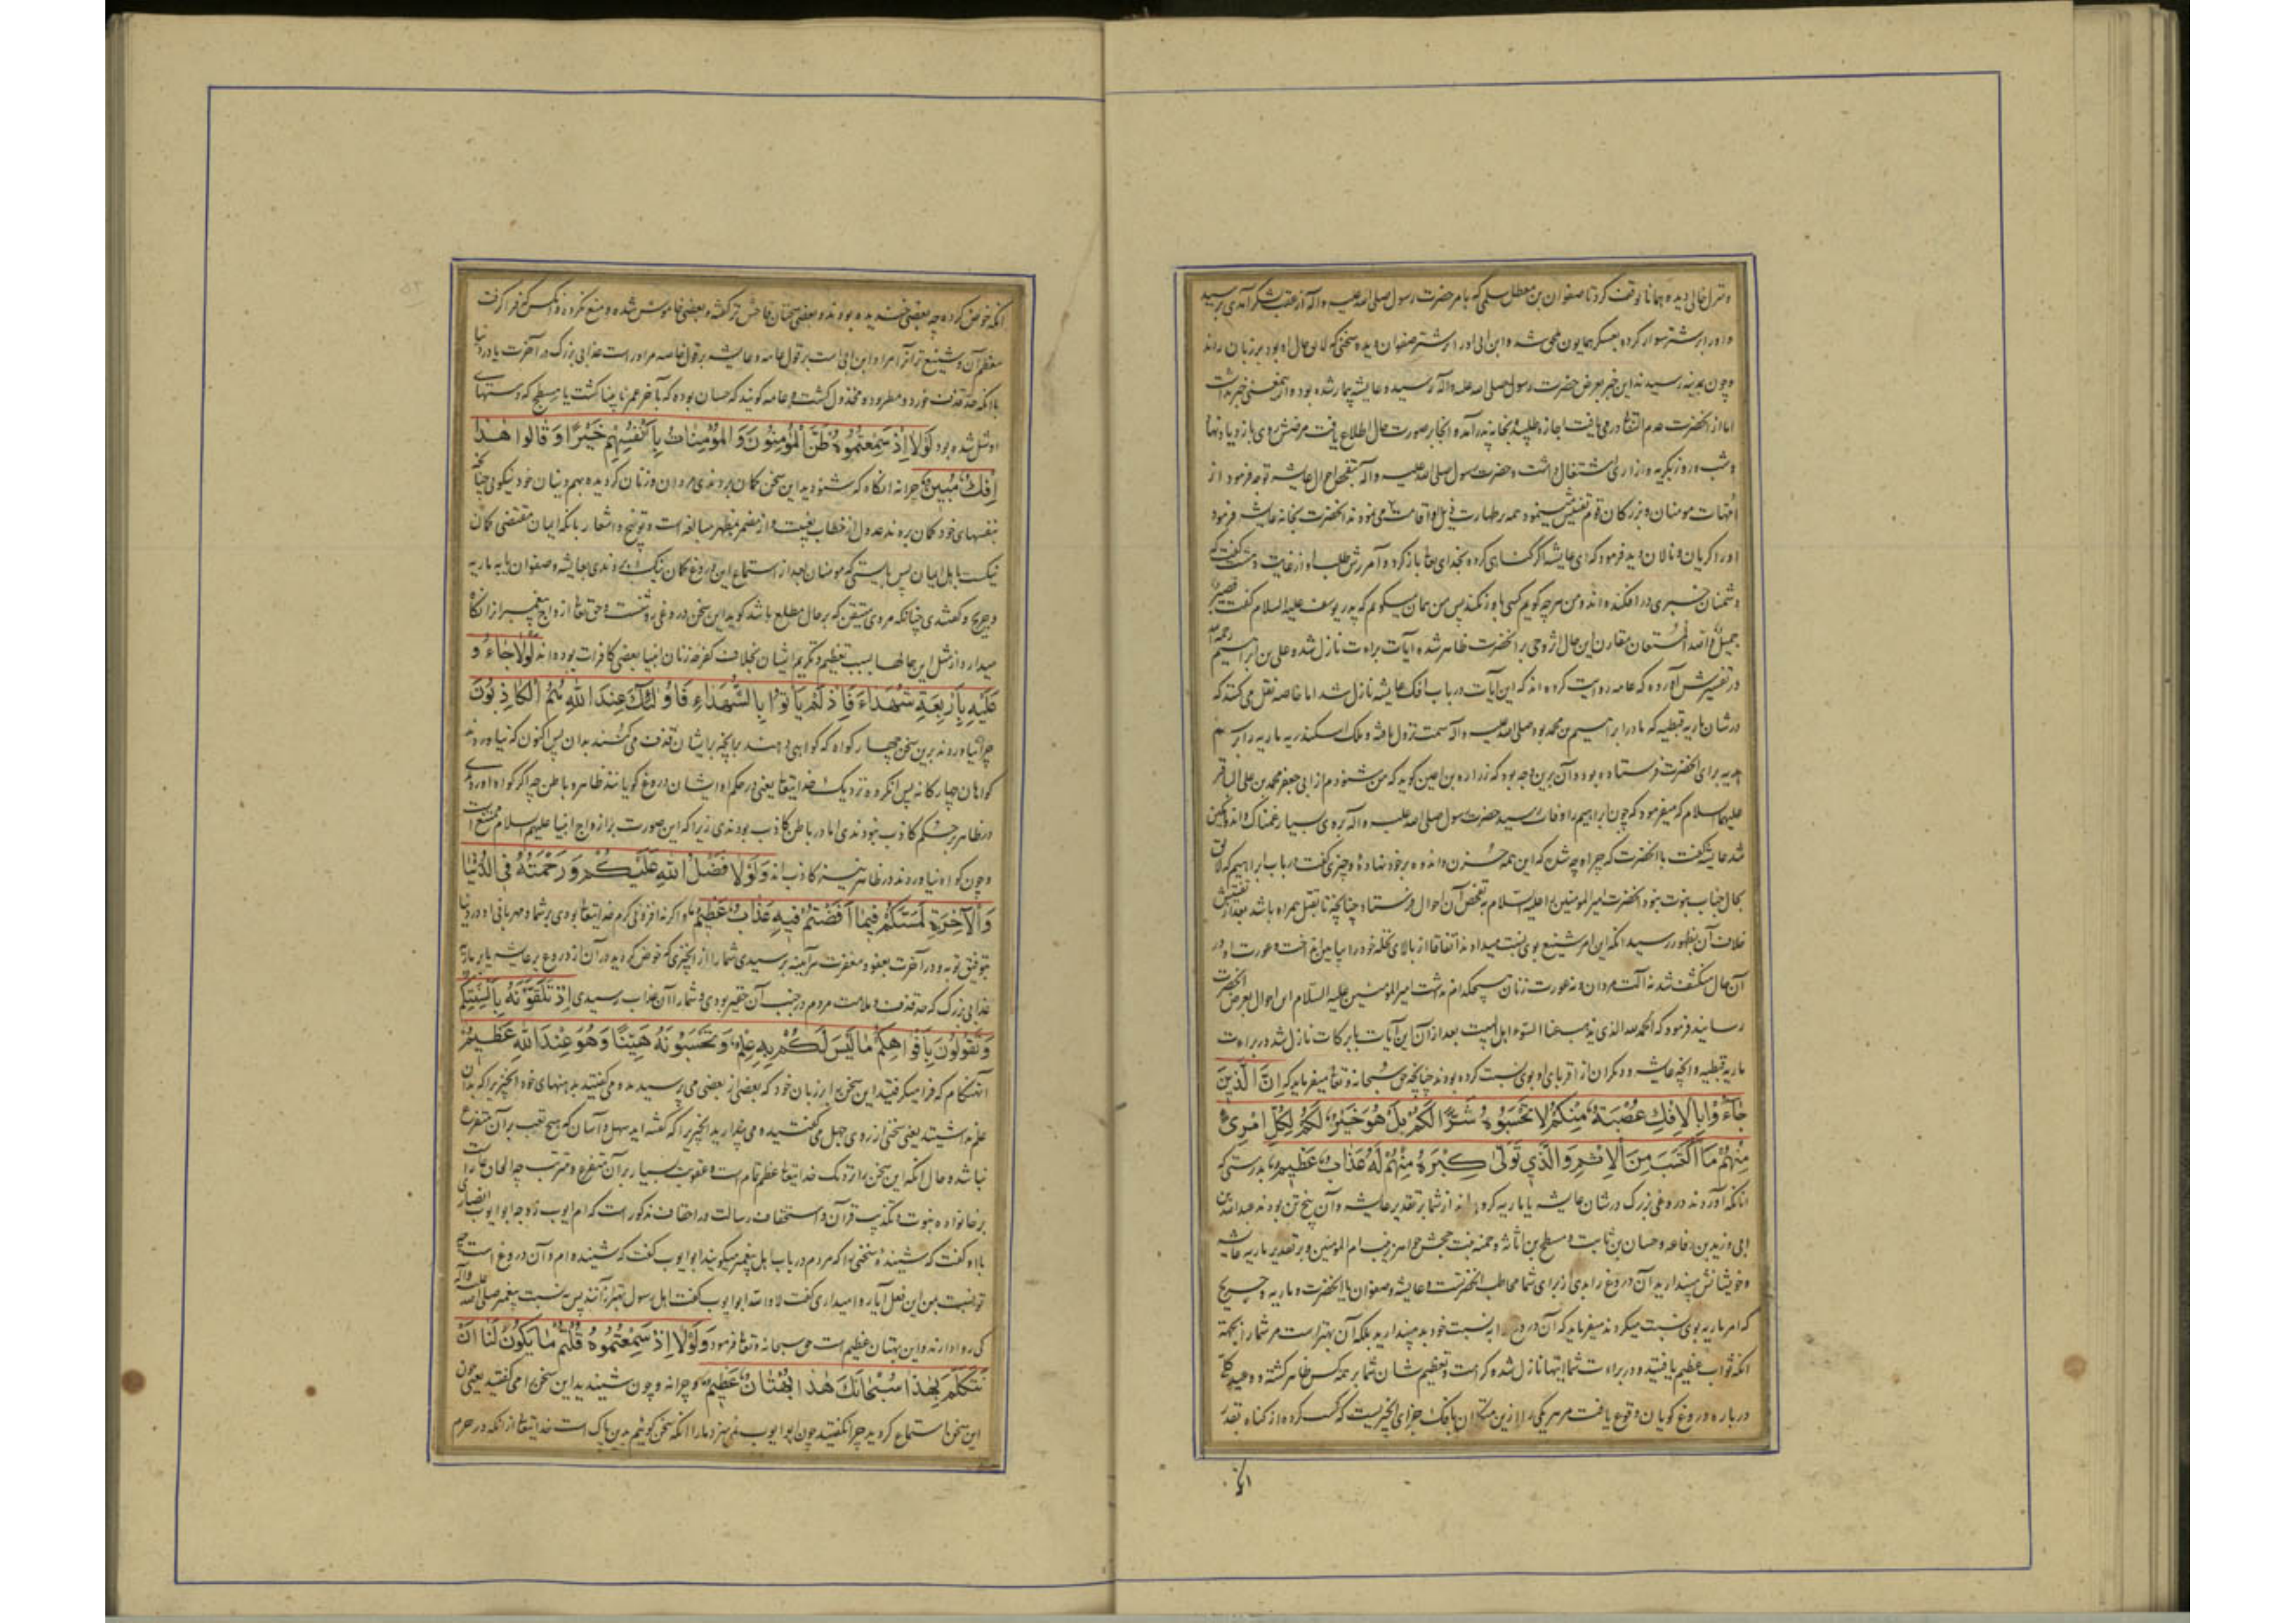 و منزل خالی دیده همانجا توقف کرد تا صفوان بن معطل سلمی که بامر حضرت رسول صلی الله علیه و اله از عقب لشکر آمدی برسید
و او را بر شتر سوار کرده بعسکر همایون ملحق شد و ابن ابی او را بر شتر صفوان دیده سخنی که لایق حال او بود بر زبان راند
و چون بمدینه رسیدند این خبر بعرض حضرت رسول صلی الله علیه و اله رسید و عایشه بیمار شده بود و ازین معنی خبر نداشت
اما از انحضرت عدم التفات در می یافت اجازه طلبیده بخانه پدر آمد و آنجا بر صورت حال اطلاع یافت مرضش روی بازدیاد نهاد
و شب و روز بگریه و زاری اشتغال داشت و حضرت رسول صلی الله علیه و اله بتفحص احوال عایشه توجه فرمود از
امهات مومنان و بزرگان قوم تفتیش مینمود همه بر طهارت ذیل او اقامت می نمودند انحضرت بخانه عایشه فرمود
او را گریان و نالان دید فرمود که ای عایشه اگر گناهی کرده بخدای تعالی باز گرد و آمرزش طلب او از غایت دهشت گفت که
دشمنان خبری در افکنده اند و من هر چه گویم کسی باور نکند پس من همان میگویم که پدر یوسف علیه السلام گفت فصبر
جمیل والله المستعان مقارن این حال اثر وحی بر انحضرت ظاهر شد و آیات براءت نازل شد و علی بن ابراهیم رحمه الله
در تفسیرش آورده که عامه روایت کرده اند که این آیات در باب افک عایشه نازل شد اما خاصه نقل می کنند که
در شان ماریه قبطیه که مادر ابراهیم بن محمد بود صلی الله علیه و اله سمت نزول یافته و ملک اسکندریه ماریه را برسم
هدیه برای انحضرت فرستاده بود و آن برین وجه بود که زراره بن اعین گوید که من شنودم از ابی جعفر محمد بن علی الباقر
علیهما السلام که میفرمود که چون ابراهیم را وفات رسید حضرت رسول صلی الله علیه و اله بر وی بسیار غمناک و اندوهگین
شد عایشه گفت با انحضرت که چرا و چه شد که این همه حزن و اندوه بر خود نهاده و چیزی گفت در باب ابراهیم که لایق
بحال جناب نبوت نبود انحضرت امیر المومنین را علیه السلام بتفحص آن احوال فرستاد چنانچه تا بقتل همراه باشد بعد از تفتیش
خلاف آن بظهور رسید آنکه این امر شنیع بوی نسبت میدادند اتفاقا از بالای نخله خود را بپایین انداخت و عورت او در
آن حال منکشف شد نه آلت مردان و نه عورت زنان هیچکدام نداشت امیر المومنین علیه السلام این احوال بعرض انحضرت
رسانید فرمود که الحمد لله الذی یصرف عنا السوء اهل البیت بعد از آن این آیات با برکات نازل شد در براءت
ماریه قبطیه و انچه عایشه و دیگران از اقربای او بوی نسبت کرده بودند چنانچه حق سبحانه و تعالی میفرماید که اِنَّ الَّذینَ
جٰاءُوا بِالْاِفْکِ عُصْبَةٌ مِنْکُمْ لٰا تَحْسَبُوهُ شَرًّا لَکُمْ بَلْ هُوَ خَیْرٌ لَکُمْ لِکُلِّ امْرِئٍ
مِنْهُمْ مَا اکْتَسَبَ مِنَ الْاِثْمِ وَالَّذِی تَوَلّٰی کِبْرَهُ مِنْهُمْ لَهُ عَذٰابٌ عَظِیمٌ بدرستی که
آنانکه آوردند دروغی بزرگ در شان عایشه یا ماریه گروهی اند از شما بر تقدیر عایشه و آن پنج تن بودند عبدالله بن
ابی و زید بن رفاعه و حسان بن ثابت و مسطح بن اثاثه و حمنه بنت جحش خواهر زینب ام المومنین و بر تقدیر ماریه عایشه
و خویشانش مپندارید آن دروغ را بدی از برای شما مخاطب انحضرتست و عایشه و صفوان یا انحضرت و ماریه و جریح
که امر ماریه بوی نسبت میکردند میفرماید که آن دروغ را به نسبت خود بد مپندارید بلکه آن بهتر است مر شما را بجهة
آنکه ثواب عظیم یافتید و در براءت شما اینها نازل شده کرامت و تعظیم شان شما بر همه کس ظاهر گشته و وعید کلی
در باره دروغ گویان وقوع یافت مر هر یکی را ازین متکلمان بافک جزای آنچیزیست که کسب کرده از گناه بقدر
آنکه
آنکه خوض کرده چه بعضی خندیده بودند و بعضی سخنان فاحش تر گفته و بعضی خاموش شده و منع نکرده و آنکس که فرا گرفت
معظم آن و شنیع تر از آن امر را و ابن ابی است بر قول عامه و عایشه بر قول خاصه مر او راست عذابی بزرگ در آخرت یا در دنیا
با آنکه حد قذف خورد و مطرود و مخذول گشت و عامه گویند که حسان بوده که بآخر عمر نابینا گشت یا مسطح که دستهای
او شل شده بود لَوْلٰا اِذْ سَمِعْتُمُوهُ ظَنَّ الْمُؤْمِنُونَ وَالْمُؤْمِنٰاتُ بِاَنْفُسِهِمْ خَیْرًا وَ قٰالُوا هٰذٰا
اِفْکٌ مُبِینٌ چرا نه آنگاه که شنودید این سخن گمان بردندی مردان و زنان گرویده بهم دینان خود نیکویی چنانکه
بنفسهای خود گمان برند عدول از خطاب بغیبت و از مضمر بمظهر مبالغه است و توبیخ و اشعار بانکه ایمان مقتضی گمان
نیکست باهل ایمان پس بایستی که مومنان بعد از استماع این دروغ گمان نیک بردندی بعایشه و صفوان یا به ماریه
و جریح و گفتندی چنانکه مردی متیقن که بر حال مطلع باشد گوید این سخن دروغی روشنست و حق تعالی ازواج پیغمبر را از آن نگاه
میدارد از مثل این حالها بسبب تعظیم و تکریم ایشان بخلاف کفر چه زنان انبیا بعضی کافرات بوده اند لَوْلٰا جٰاءُو
عَلَیْهِ بِاَرْبَعَةِ شُهَدٰاءَ فَاِذْ لَمْ یَأْتُوا بِالشُّهَدٰاءِ فَاُولٰئِکَ عِنْدَ اللّٰهِ هُمُ الْکٰاذِبُونَ
چرا نیاوردند برین سخن چهار گواه که گواهی دهند بر انچه بر ایشان قذف می کنند بدان پس اکنون که نیاوردند
گواهان چهارگانه پس آن گروه نزدیک خدایتعالی یعنی در حکم او ایشان دروغ گویانند ظاهر و باطن چه اگر گواه آوردندی
در ظاهر بحکم کاذب نبودندی اما در باطن کاذب بودندی زیرا که این صورت بر ازواج انبیا علیهم السلام ممتنع است
و چون گواه نیاوردند در ظاهر نیز کاذب اند وَ لَوْلٰا فَضْلُ اللّٰهِ عَلَیْکُمْ وَ رَحْمَتُهُ فِی الدُّنْیٰا
وَ الْاٰخِرَةِ لَمَسَّکُمْ فِیمٰا اَفَضْتُمْ فِیهِ عَذٰابٌ عَظِیمٌ و اگر نه افزونی کرم خدایتعالی بودی بر شما و مهربانی او در دنیا
بتوفیق توبه و در آخرت بعفو و مغفرت هر آینه برسیدی شما را از آنچیزی که خوض کردید در آن از دروغ بر عایشه یا بر ماریه
عذابی بزرگ که حد قذف و ملامت مردم در جنب آن حقیر بودی و شما را آن عذاب رسیدی اِذْ تَلَقَّوْنَهُ بِاَلْسِنَتِکُمْ
وَ تَقُولُونَ بِاَفْوٰاهِکُمْ مٰا لَیْسَ لَکُمْ بِهِ عِلْمٌ وَ تَحْسَبُونَهُ هَیِّنًا وَ هُوَ عِنْدَ اللّٰهِ عَظِیمٌ
آن هنگام که فرا میگرفتید این سخن را بزبان خود که بعضی از بعضی می پرسید و می گفتید بدهنهای خود آنچیزیرا که بدان
علم نداشتید یعنی سخنی از روی جهل می گفتید و می پندارید آنچیزیرا که گفته اید سهل و آسان که هیچ تعب بر آن متفرع
نباشد و حال آنکه این سخن نزدیک خدایتعالی عظیم تمام است و عقوبت بسیار بر آن متفرع و مترتب چه الحاق عار است
بر خانواده نبوت و تکذیب قرآن و استخفاف رسالت و در احقاف مذکور است که ام ایوب زوجه ابو ایوب انصاری
با او گفت که شنیده سخنی را که مردم در باب اهل پیغمبر میگویند ابو ایوب گفت که شنیده ام و آن دروغ است
تو نسبت بمن این فعل آیا روا میداری گفت لا والله ابو ایوب گفت اهل رسول بهتر از آنند پس به نسبت پیغمبر صلی الله علیه و اله
کی روا دارند و این بهتان عظیم است حق سبحانه و تعالی فرمود وَ لَوْلٰا اِذْ سَمِعْتُمُوهُ قُلْتُمْ مٰا یَکُونُ لَنٰا اَنْ
نَتَکَلَّمَ بِهٰذٰا سُبْحٰانَکَ هٰذٰا بُهْتٰانٌ عَظِیمٌ و چرا نه و چون شنیدید این سخن را می گفتید یعنی چون
این سخن را استماع کردید چرا نگفتید چون ابو ایوب نمی سزد ما را آنکه سخن گوئیم بدین پاک است خدایتعالی از آنکه در حرم